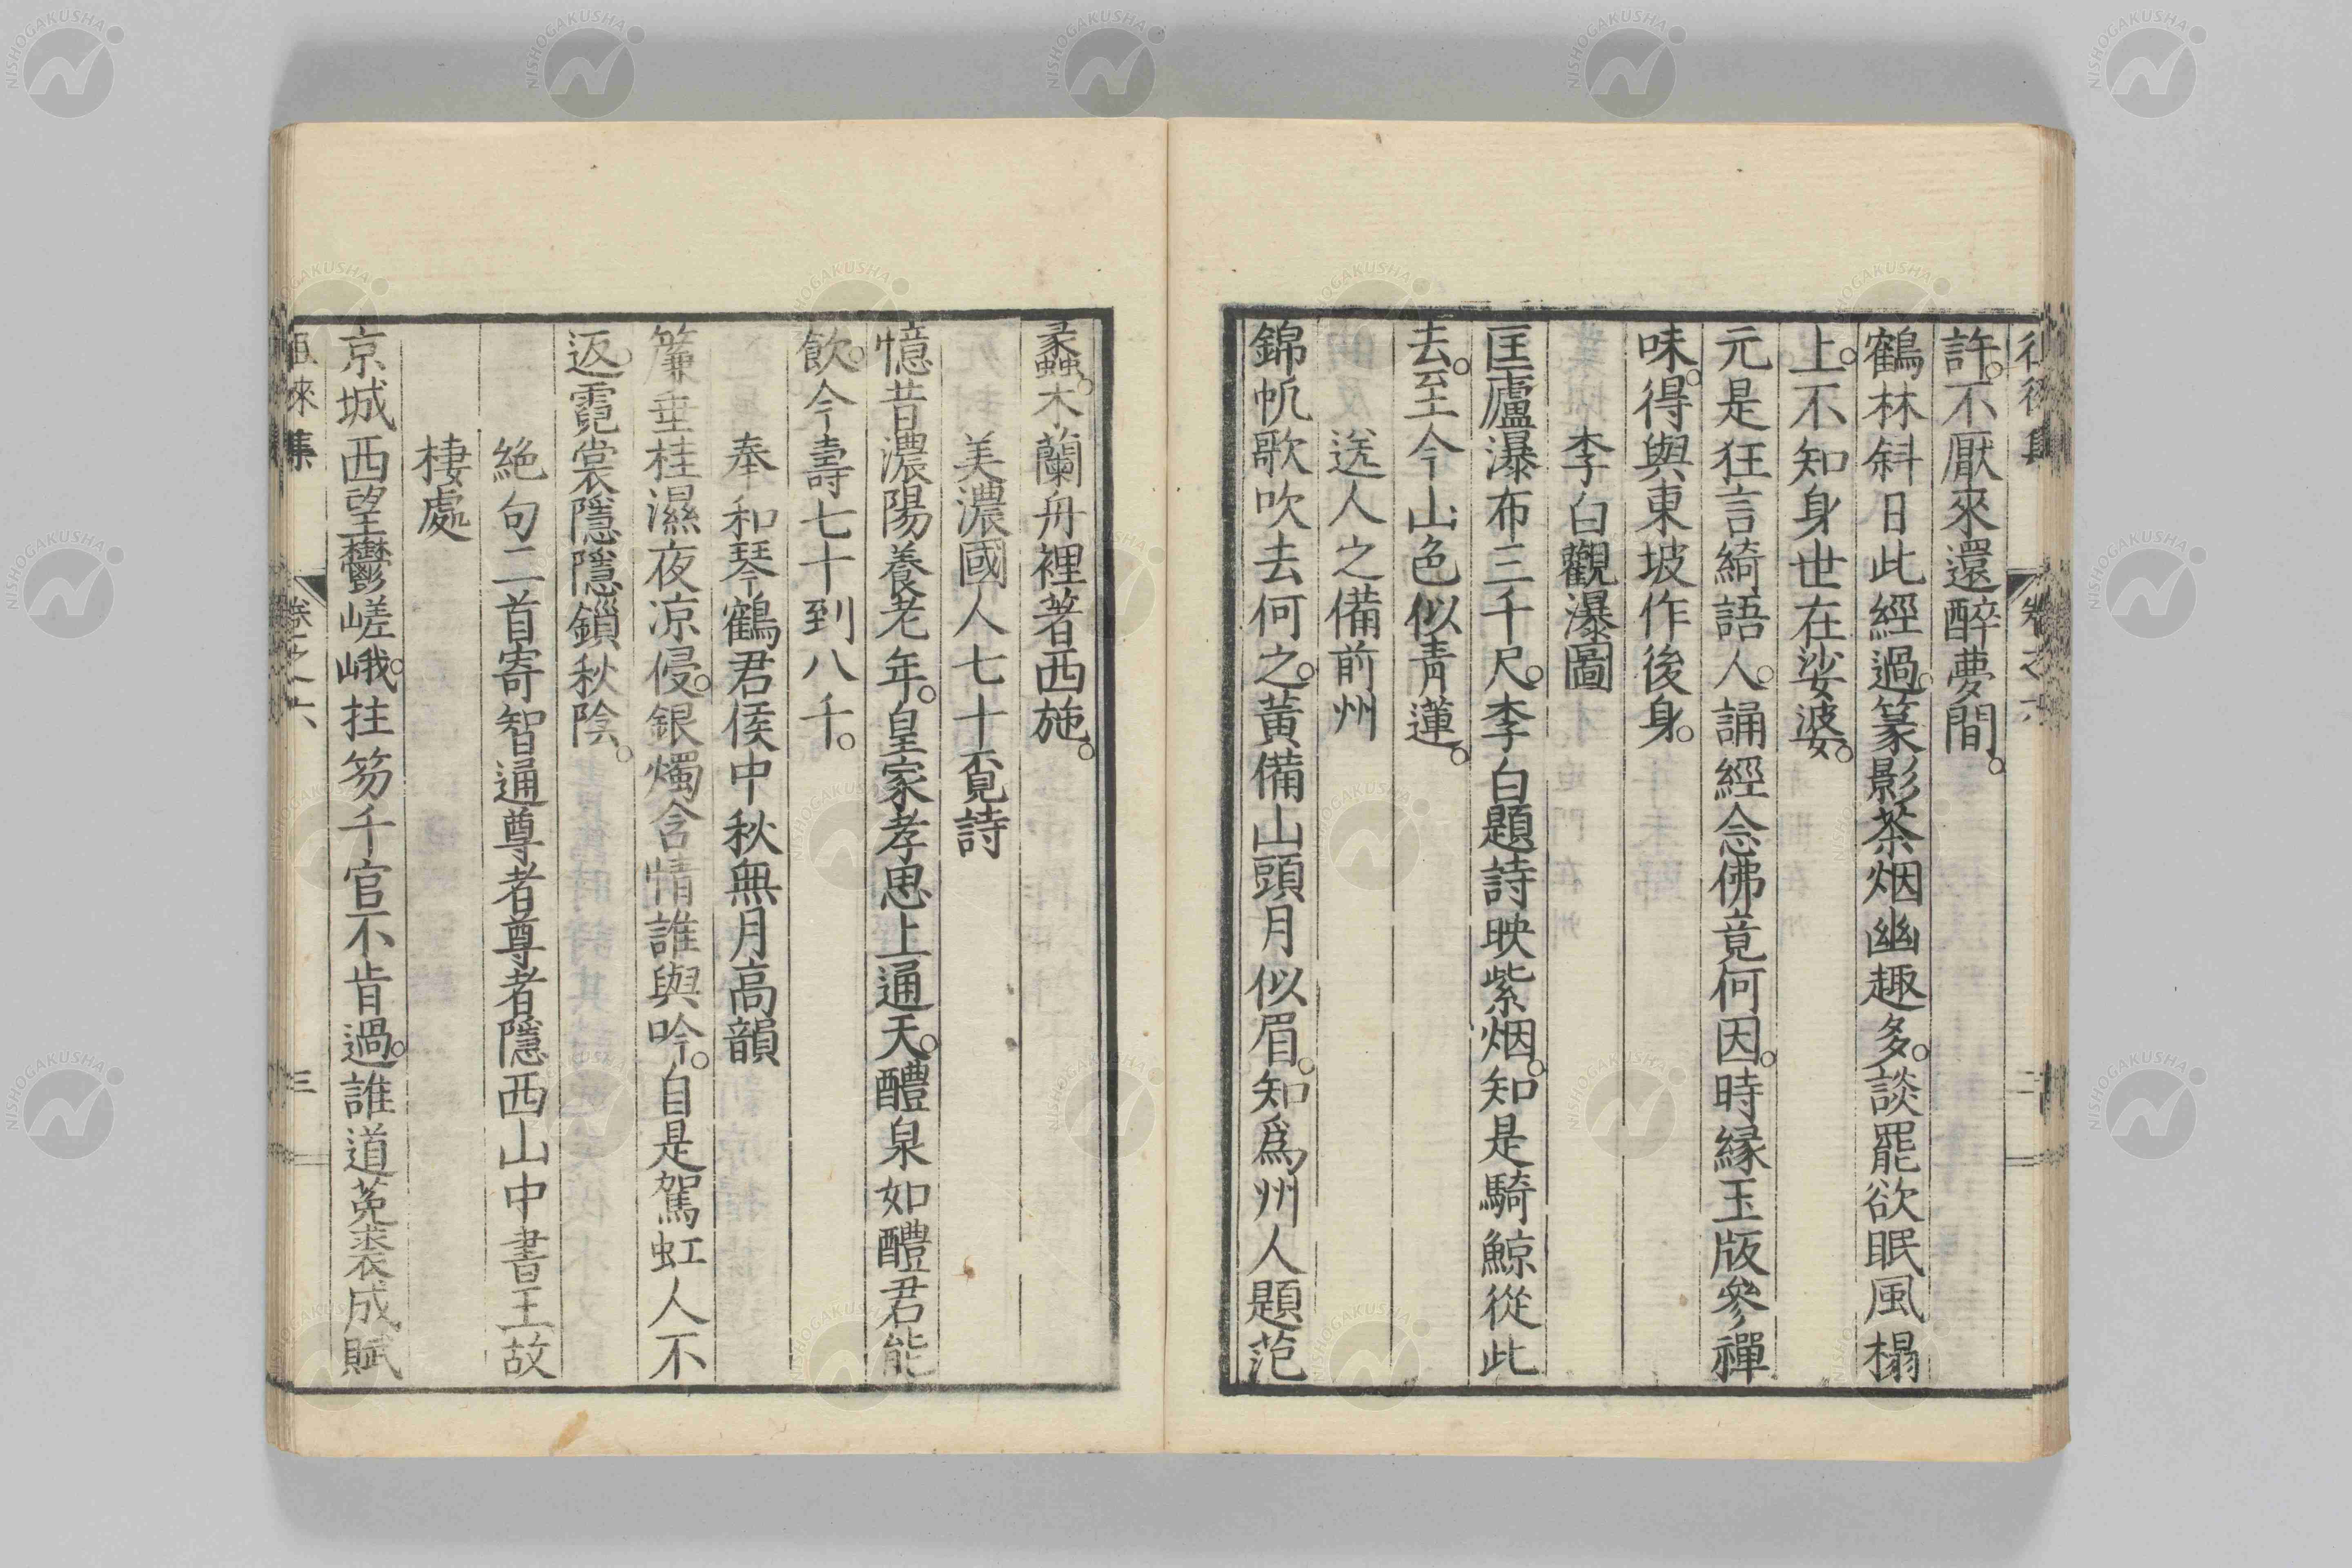 許。不厭來還醉夢間。
鶴林斜日此經過。篆影茶烟幽趣多。談罷欲眠風榻
上。不知身世在娑婆。
元是狂言綺語人。誦經念佛竟何因。時縁玉版參禪
味。得與東坡作後身。
李白觀瀑圖
匡廬瀑布三千尺。李白題詩映紫烟。知是騎鯨從此
去。至今山色似青蓮。
送人之備前州
錦帆歌吹去何之。黃備山頭月似眉。知爲州人題范
蠡。木蘭舟裡著西施。
美濃國人七十覔詩
憶昔濃陽養老年。皇家孝思上通天。醴泉如醴君能
飲。今壽七十到八千。
奉和琴鶴君侯中秋無月高韻
簾垂桂濕夜凉侵。銀燭含情誰與吟。自是駕虹人不
返。霓裳隱隱鎖秋陰。
絶句二首寄智通尊者尊者隱西山中書王故
棲處
京城西望鬱嵯峨。拄笏千官不肯過。誰道菟裘成賦
徂徠集 卷之六 三
NISHOGAKUSHA